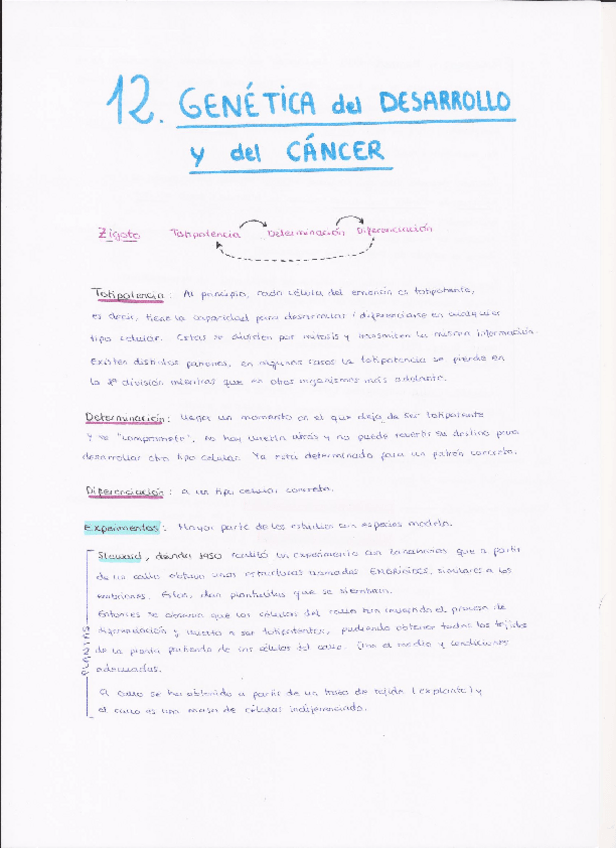 12. GENÉTICA del DESARROLLO
y del CÁNCER
Zigoto Totipotencia Determinación Diferenciación
Totipotencia: Al principio, cada célula del embrión es totipotente,
es decir, tiene la capacidad para desarrollar / diferenciarse en cualquier
tipo celular. Estas se dividen por mitosis y transmiten la misma información.
Existen distintos patrones, en algunos casos la totipotencia se pierde en
la 2ª división mientras que en otros organismos más adelante.
Determinación: llega un momento en el que deja de ser totipotente
y se "compromete", no hay vuelta atrás y no puede revertir su destino para
desarrollar otro tipo celular. Ya está determinado para un patrón concreto.
Diferenciación: a un tipo celular concreto.
Experimentos: Mayor parte de los estudios con especies modelo.
PLANTAS
Steward, década 1950 realizó un experimento con zanahorias que a partir
de un callo obtuvo unas estructuras llamadas EMBRIOIDES, similares a los
embriones. Estos, dan plantulitas que se siembran.
Entonces se observa que las células del callo han invertido el proceso de
diferenciación y vuelto a ser totipotentes, pudiendo obtener todos los tejidos
de la planta partiendo de las células del callo. Con el medio y condiciones
adecuadas.
El callo se ha obtenido a partir de un trozo de tejido (explante) y
el callo es una masa de células indiferenciado.